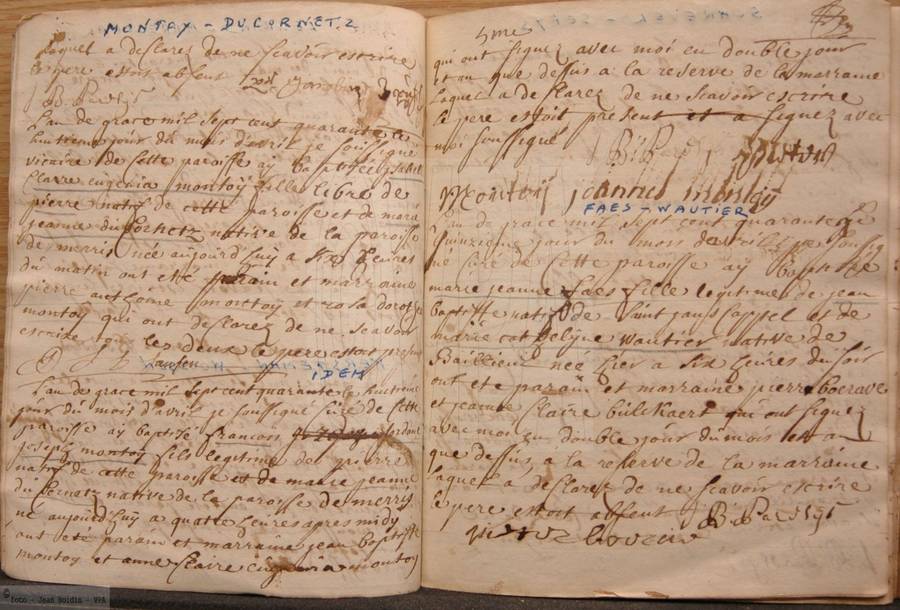 MONTAY - DUCORNETZ
Laquel a desclarez de ne scavoir escrire
le pere estois absent
L'an de grace mil sept cent quarante le
huitieme jour du mois d'avril je soussigné
vicaire de cette paroisse aÿ baptisée isabel
Claire eugenia montoÿ fille libre de
pierre natif de cette paroisse et de marie
jeanne du Cornetz native de la paroisse
de merris née aujourd'huÿ a six heures
du matin ont eté parain et marraine
pierre anthoine montoÿ et rosa dorothe
montoy qui ont desclarez de ne scavoir
escrire les deux le pere estoit present
IDEM
L'an de grace mil sept cent quarante le huitieme
jour du mois d'avril je soussigné curé de cette
paroisse aÿ baptisé francois
joseph montoÿ fils legitime de pierre
natif de cette paroisse et de marie jeanne
du Cernetz native de la paroisse de merris
né aujourd'huÿ a quatre heures apres midÿ
ont eté parain et marraine jean baptiste
montoÿ et anne Claire Eugenia montoÿ
© foto - Jean Boidin - VPA
5me
qui ont signez avec moi en double jour
et an que dessus a la reserve de la marraine
laquel a desclarez de ne scavoir escrire
le pere estoit present et a signez avec
moi soussigné
FAES - WAUTIER
L'an de grace mil sept cent quarante le
Quinzieme jour du mois d'avril je soussig
né curé de cette paroisse aÿ baptisée
marie jeanne faes fille legitime de jean
baptiste natif de Saint jans Cappel et de
marie catheline wautier native de
Baillieul née hier a six heures du soir
ont eté parain et marraine pierre boerave
et jeanne Claire bulckaert qui ont signez
avec moi en double jour du mois et an
que dessus a la reserve de la marraine
laquel a desclarez de ne scavoir escrire
le pere estoit absent